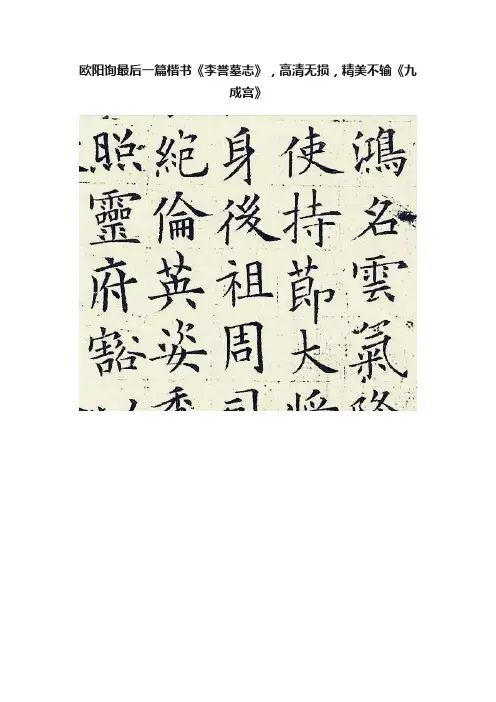 欧阳询最后一篇楷书《李誉墓志》，高清无损，精美不输《九
成宫》
鴻名雲氣
使持節大
身後祖周司
絕倫英姿
照靈府豁